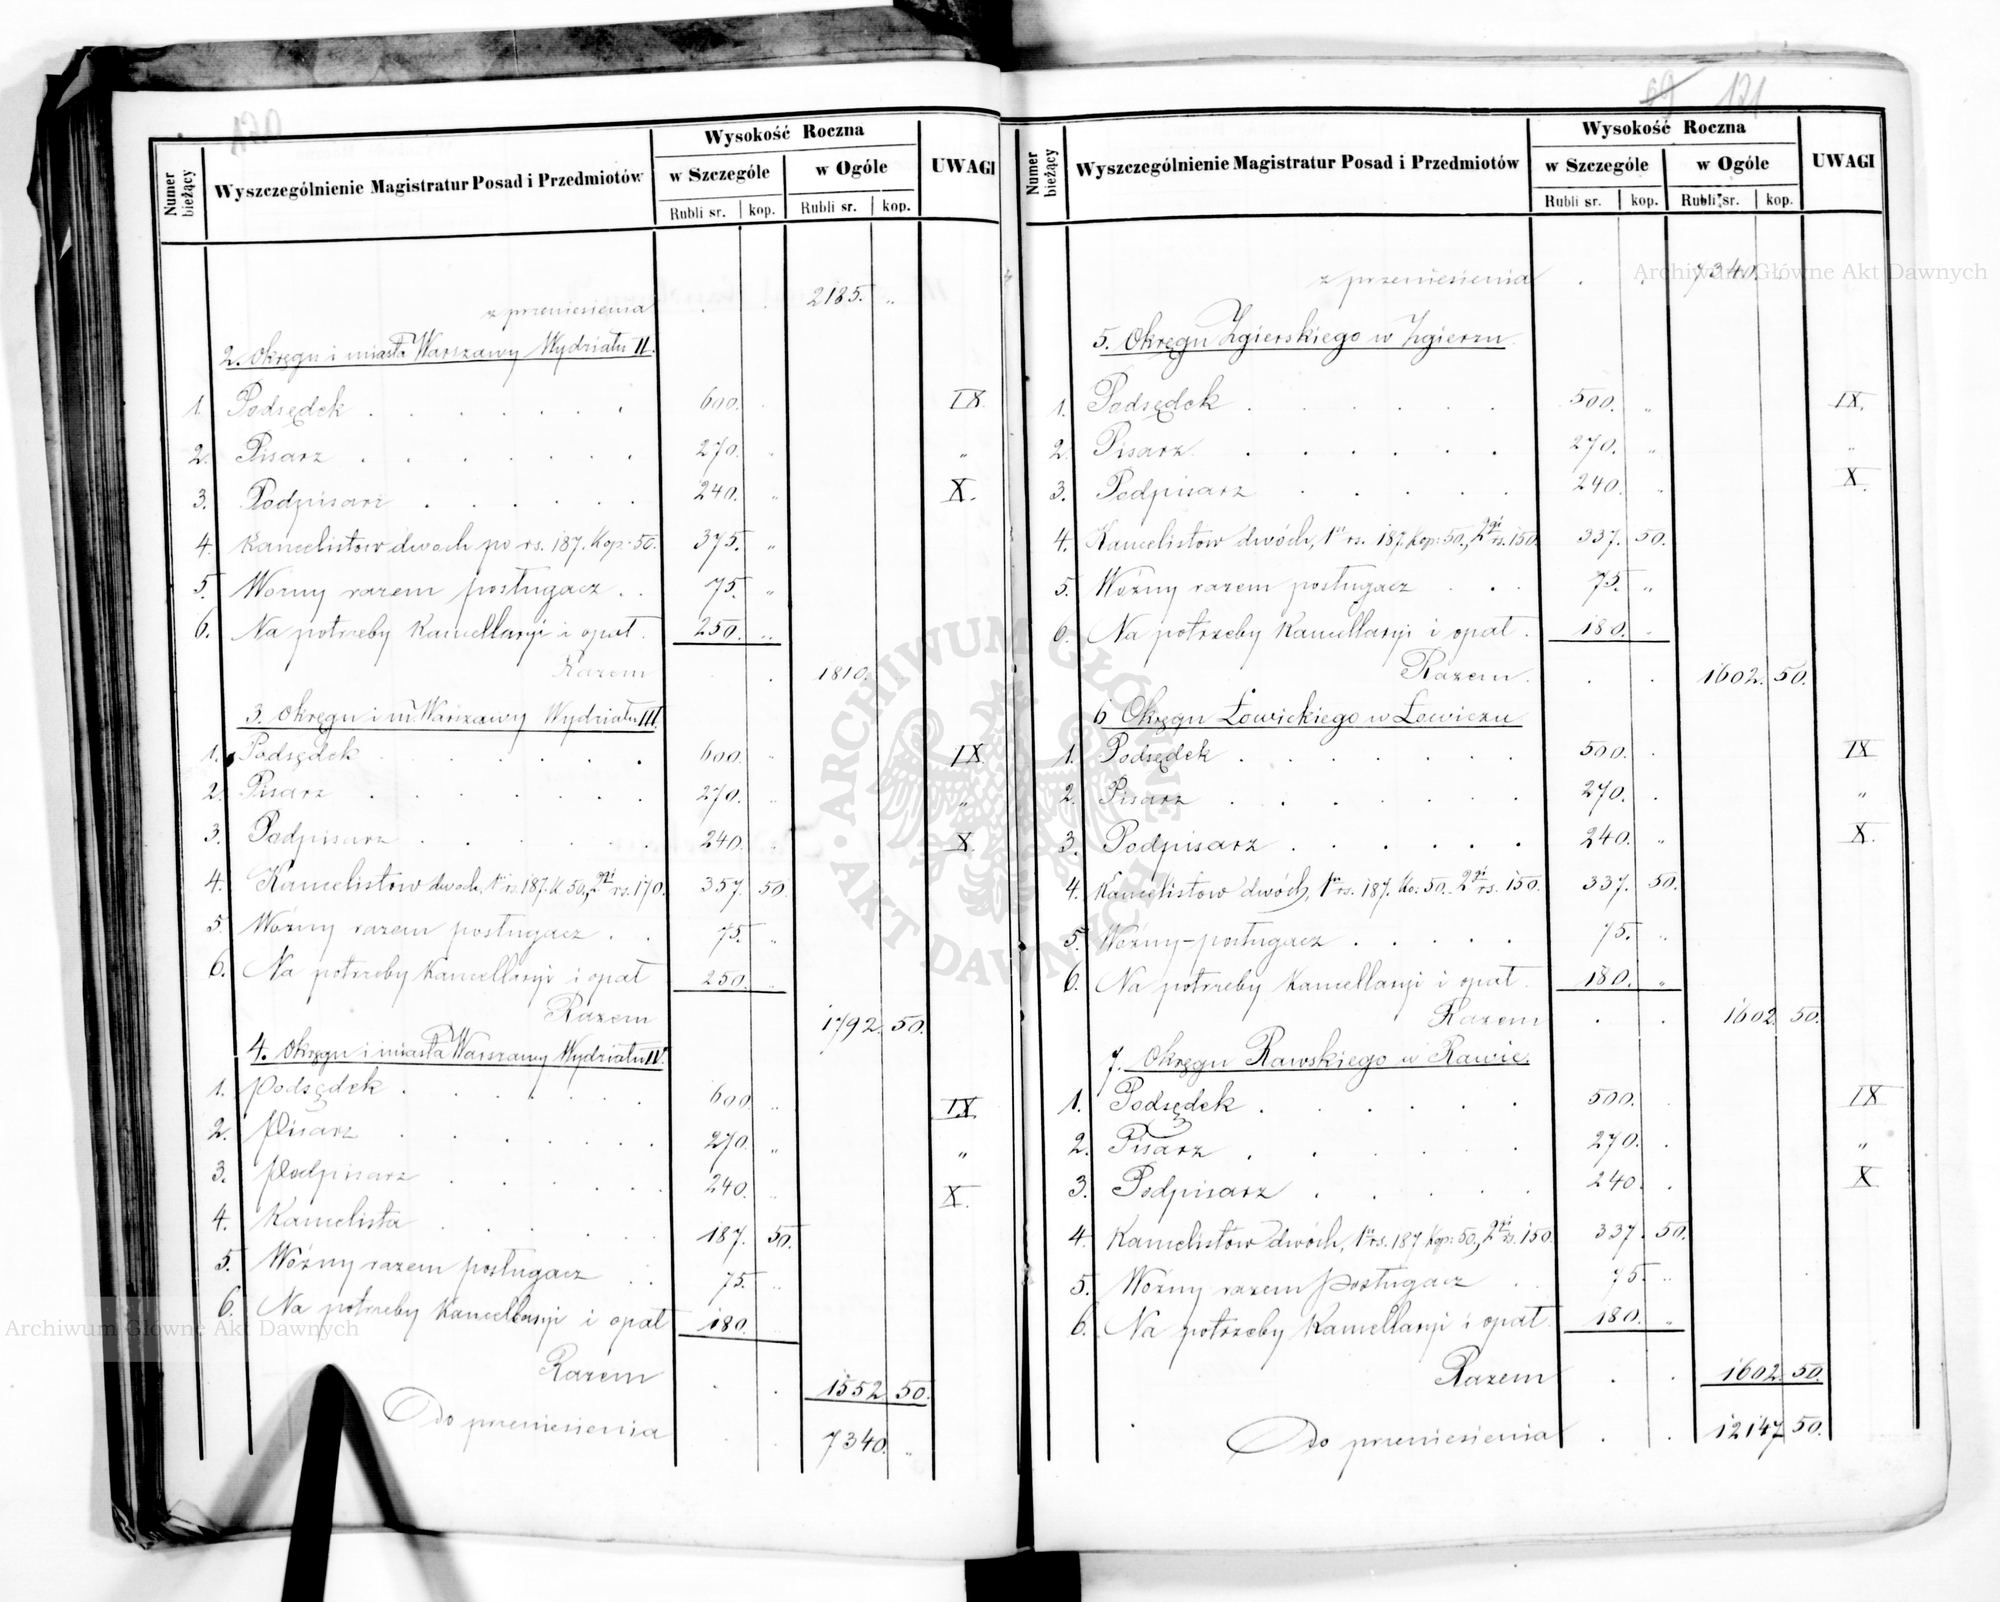 120
Numer bieżący
Wyszczególnienie Magistratur Posad i Przedmiotów
Wysokość Roczna
w Szczególe w Ogóle
Rubli sr. kop. Rubli sr. kop.
UWAGI
z przeniesienia . . 2185. "
2. Okręgu i miasta Warszawy Wydziału II.
1. Podsędek . . . . . . . 600. . IX.
2. Pisarz . . . . . . . 270. " "
3. Podpisarz . . . . . 240. " X.
4. Kancelistow dwoch po rs. 187. Kop: 50. 375. "
5. Woźny razem posługacz . . 75. "
6. Na potrzeby Kancellaryi i opał. 250. "
Razem . . 1810.
3. Okręgu i m. Warszawy Wydziału III.
1. Podsędek . . . . . . . 600. " IX
2. Pisarz . . . . . . . 270. " "
3. Podpisarz . . . . . . 240. X.
4. Kancelistow dwoch, 1n rs. 187. K 50., 2gi rs. 170. 357. 50.
5. Woźny razem posługacz . . 75. "
6. Na potrzeby Kancellaryi i opał 250. "
Razem 1792. 50.
4. Okręgu i miasta Warszawy Wydziału IV.
1. Podsędek . . . . . . 600 " IX.
2. Pisarz . . . . . . 270. " "
3. Podpisarz . . . . . 240. " X.
4. Kancelista . . . . . 187. 50.
5. Woźny razem posługacz . . 75. "
6. Na potrzeby Kancellaryi i opał 180. "
Razem . . 1552 50.
Do przeniesienia . . 7340. "
69 121
Numer bieżący
Wyszczególnienie Magistratur Posad i Przedmiotów
Wysokość Roczna
w Szczególe w Ogóle
Rubli sr. kop. Rubli sr. kop.
UWAGI
z przeniesienia . . 7340.
5. Okręgu Zgierskiego w Zgierzu.
1. Podsędek . . . . . . 500. " IX.
2. Pisarz . . . . . . 270. " "
3. Podpisarz . . . . . 240. " X.
4. Kancelistow dwóch, 1n rs. 187. Kop: 50., 2gi rs. 150. 337. 50.
5. Woźny razem posługacz . . . 75. "
6. Na potrzeby Kancellaryi i opał. 180. "
Razem. . . 1602. 50.
6 Okręgu Łowickiego w Łowiczu
1. Podsędek . . . . . . . 500. . IX
2. Pisarz . . . . . . . 270. . "
3. Podpisarz . . . . . . 240. " X.
4. Kancelistow dwóch, 1n rs. 187. Ko: 50. 2gi rs. 150. 337. 50.
5. Woźny-posługacz . . . . . 75. "
6. Na potrzeby Kancellaryi i opał. 180. "
Razem . . 1602. 50.
7. Okręgu Rawskiego w Rawie.
1. Podsędek . . . . . . 500. . IX
2. Pisarz . . . . . . 270. . "
3. Podpisarz . . . . . 240. . X.
4. Kancelistow dwóch, 1n rs. 187 Kop: 50., 2gi rs. 150. 337. 50.
5. Woźny razem posługacz . . 75. "
6. Na potrzeby Kancellaryi i opał. 180. "
Razem . . 1602. 50.
Do przeniesienia . . 12147 50.
Archiwum Główne Akt Dawnych
ARCHIWUM GŁÓWNE AKT DAWNYCH
Archiwum Główne Akt Dawnych